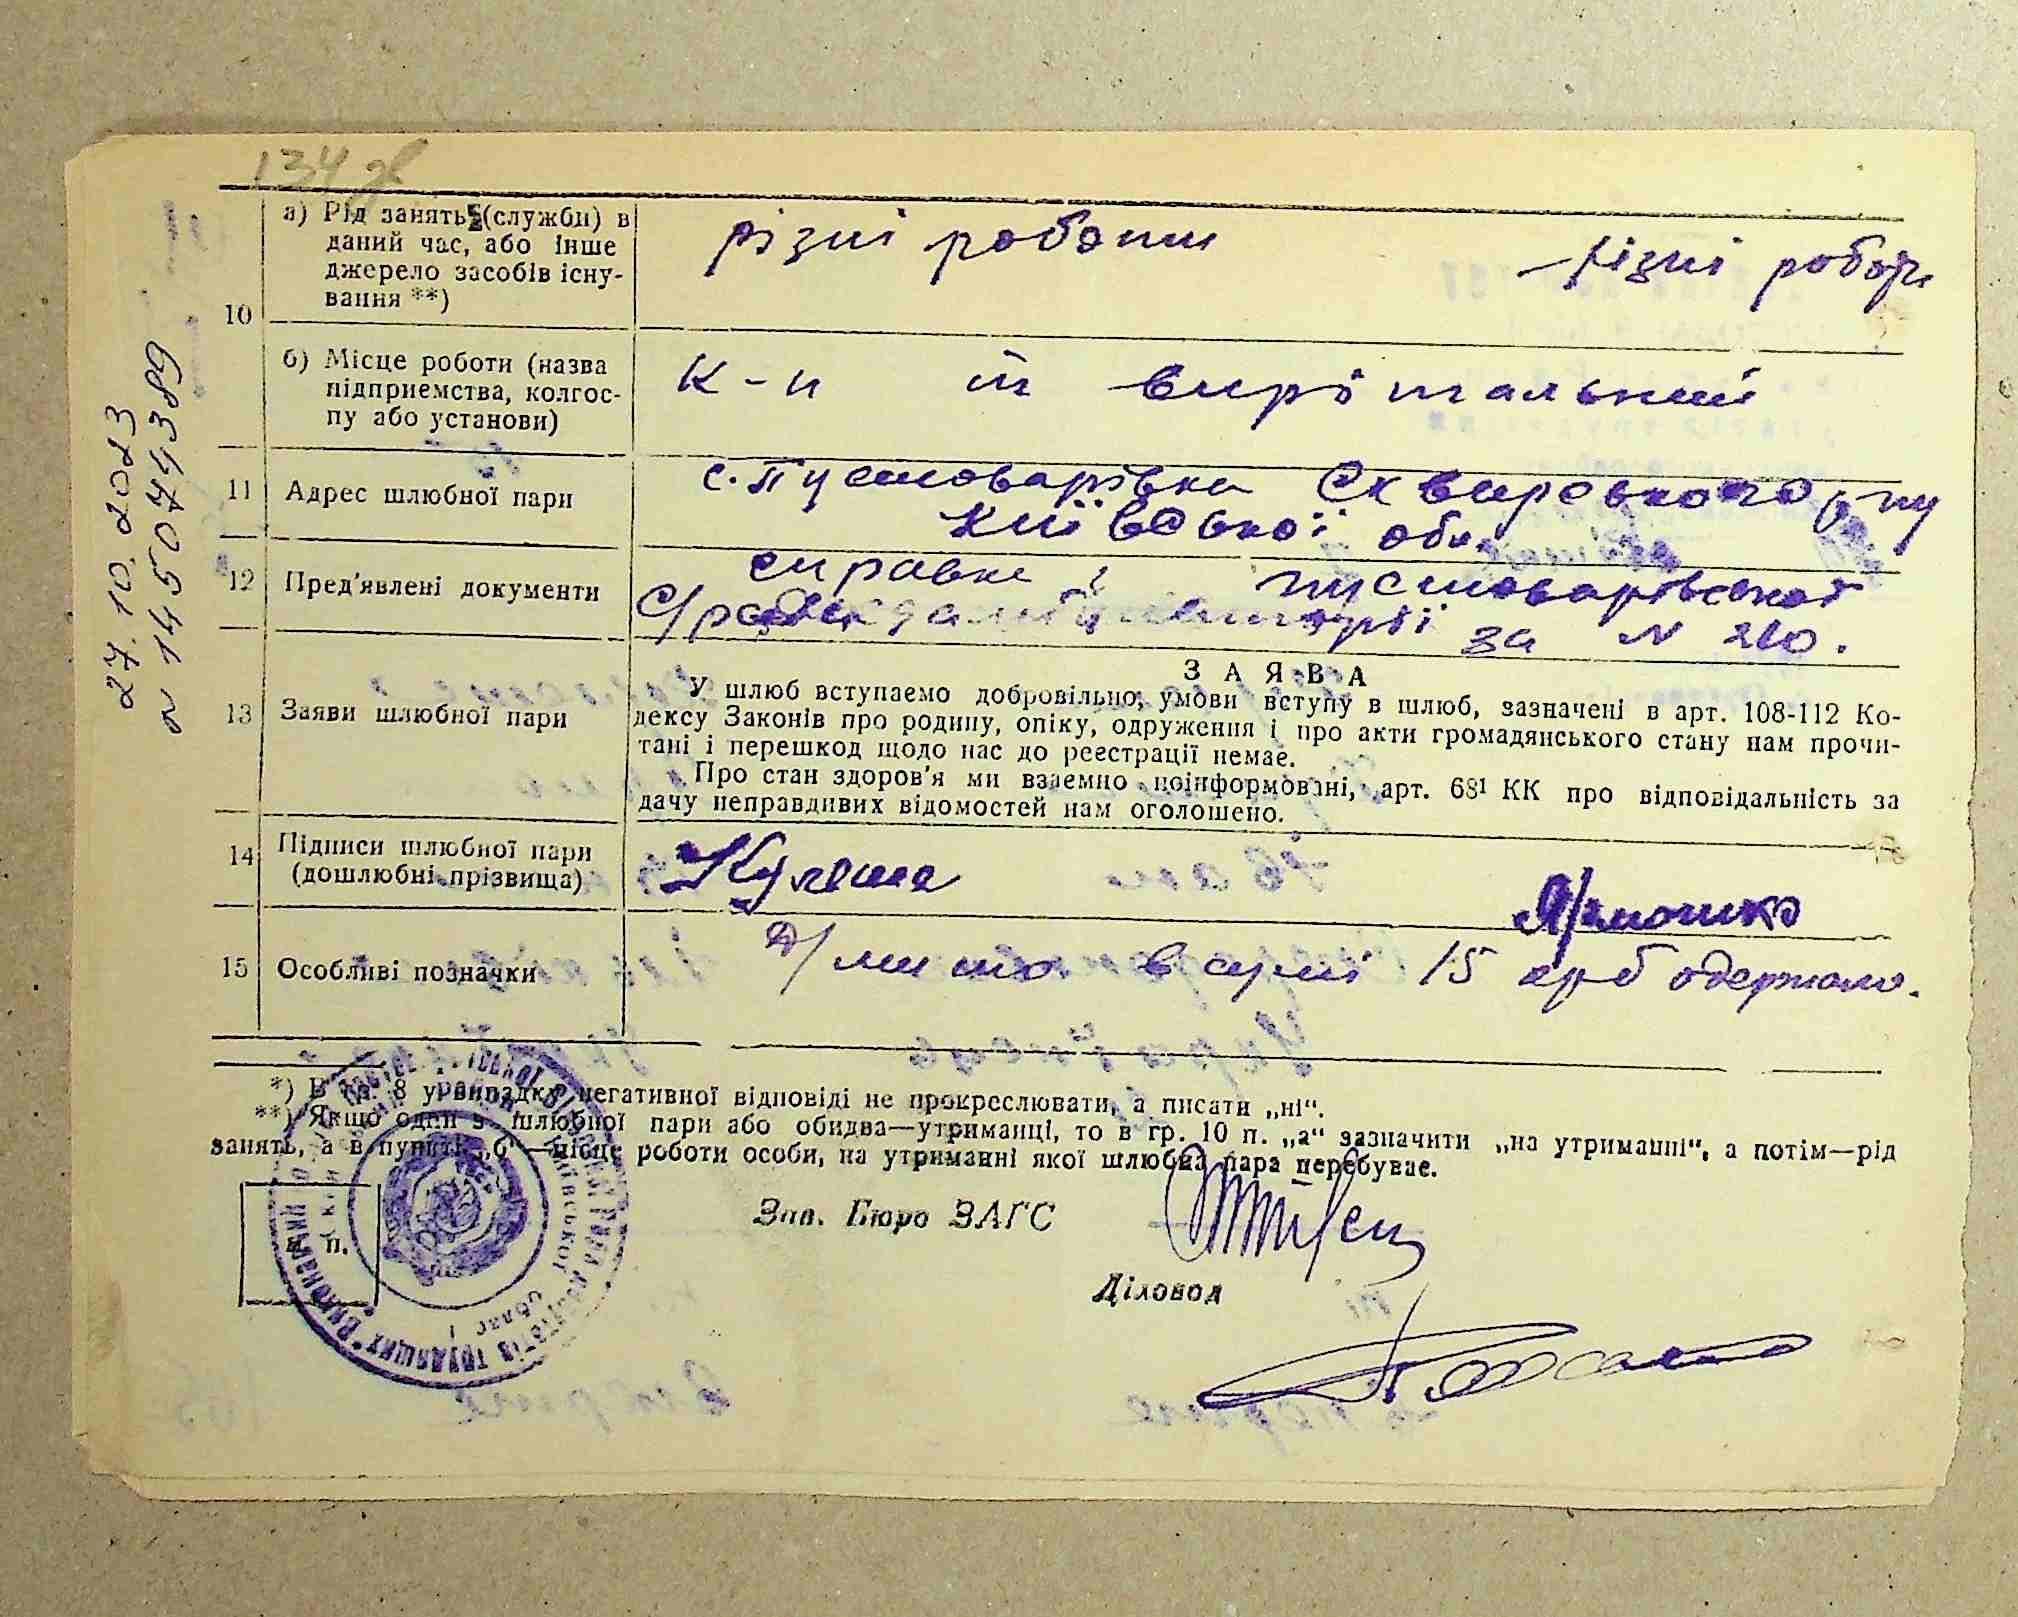 134 зв
27.10.2023
N 14507493389
10
а) Рід занять (служби) в
даний час, або інше
джерело засобів існу-
вання **)
різні роботи
різні роботи
б) Місце роботи (назва
підприємства, колгос-
пу або установи)
К-п ій вирішальний
11
Адрес шлюбної пари
с. Пустоварівка Сквирського р-ну
Київської обл.
12
Пред'явлені документи
справка Пустоварівської
с/ради за N 210.
13
Заяви шлюбної пари
ЗАЯВА
У шлюб вступаємо добровільно; умови вступу в шлюб, зазначені в арт. 108-112 Ко-
дексу Законів про родину, опіку, одруження і про акти громадянського стану нам прочи-
тані і перешкод щодо нас до реєстрації немає.
Про стан здоров'я ми взаємно поінформовані, арт. 68¹ КК про відповідальність за
дачу неправдивих відомостей нам оголошено.
14
Підписи шлюбної пари
(дошлюбні прізвища)
Кулеша
Ярмошко
15
Особливі позначки
Д/мито в сумі 15 крб одержано.
*) В гр. 8 у випадку негативної відповіді не прокреслювати, а писати „ні“.
**) Якщо один з шлюбної пари або обидва—утриманці, то в гр. 10 п. „а“ зазначити „на утриманні“, а потім—рід
занять, а в пункті „б“—місце роботи особи, на утриманні якої шлюбна пара перебуває.
Зав. Бюро ЗАГС
Діловод
м. п.